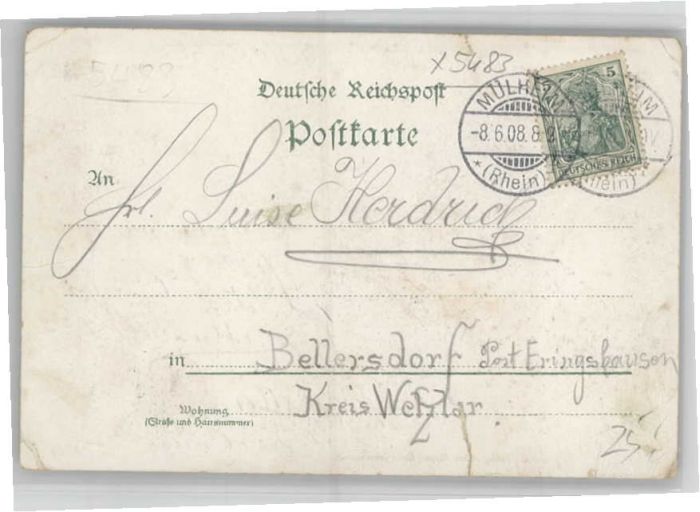 5483
x 5483
Deutsche Reichspost
Postkarte
MÜLHEIM
-8.6.08.8
* (Rhein)
5
DEUTSCHES REICH
An
Frl. Luise Herdrich
in Bellersdorf Post Eringshausen
Kreis Wetzlar
Wohnung
(Straße und Hausnummer)
25.-